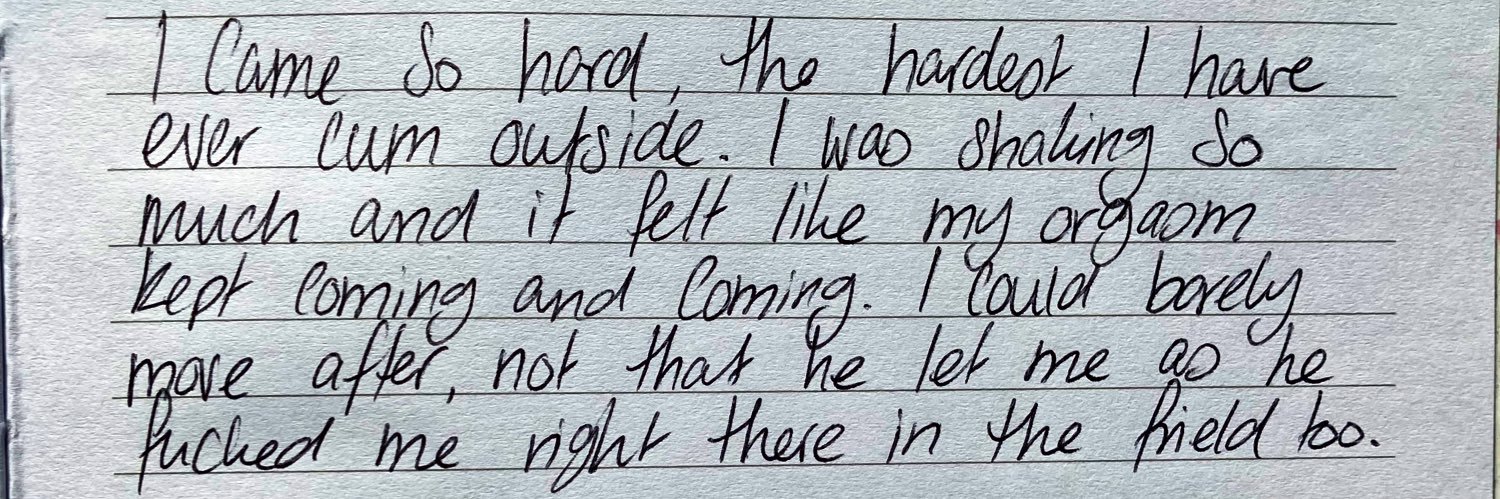 I Came So hard, the hardest I have
ever cum outside. I was shaking So
much and it felt like my orgasm
kept coming and Coming. I Could barely
move after, not that he let me as he
fucked me right there in the field too.